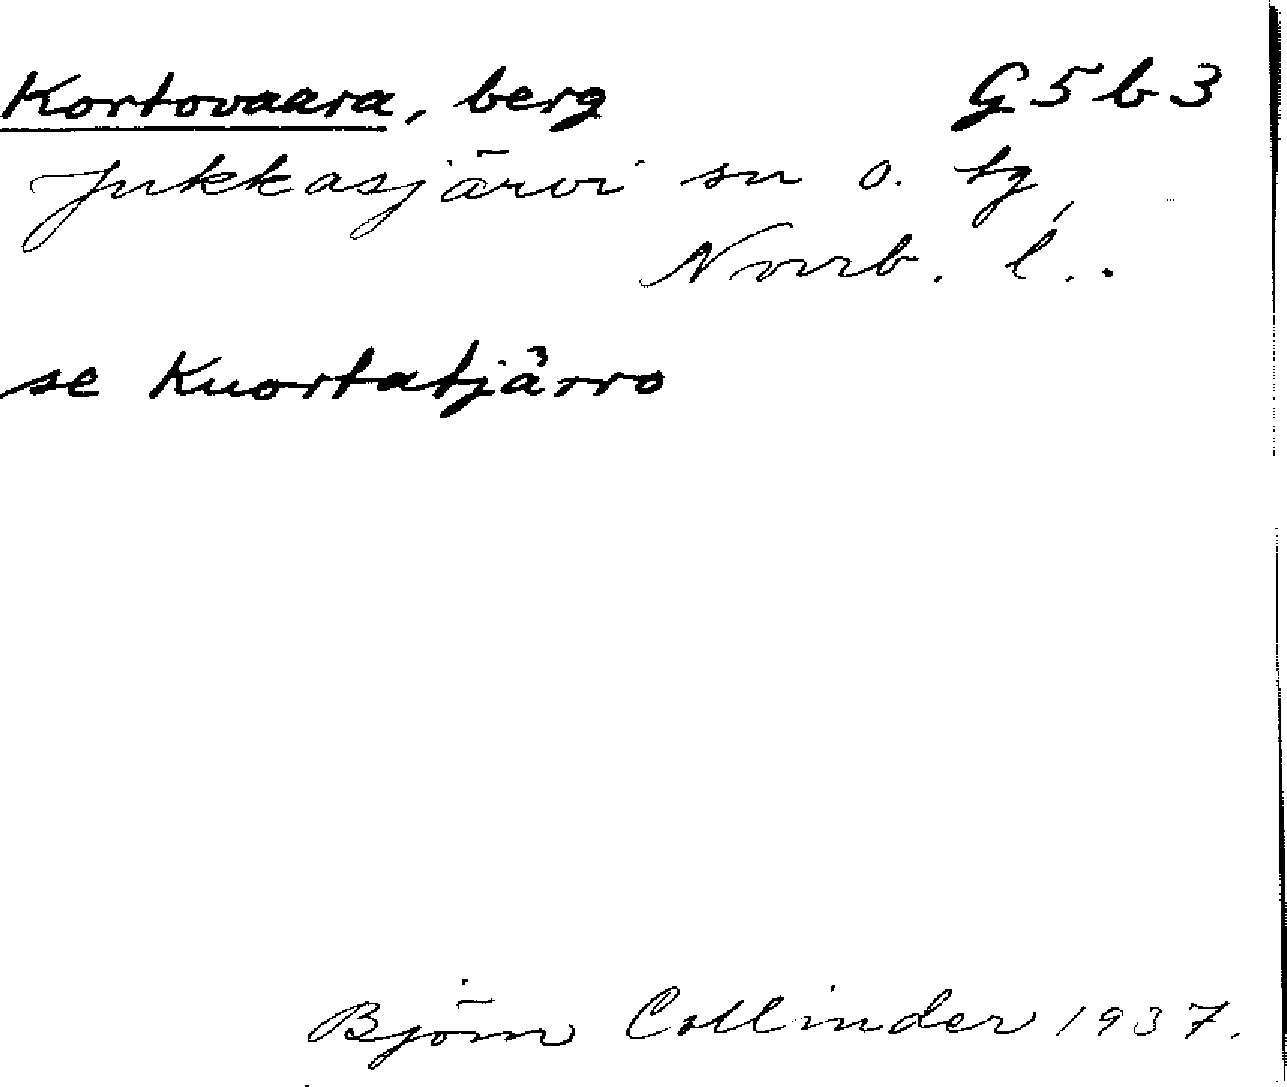 Kortovaara, berg G5b3
Jukkasjärvi sn o. tg,
Norrb. l..
se Kuortatjårro
Björn Collinder 1937.